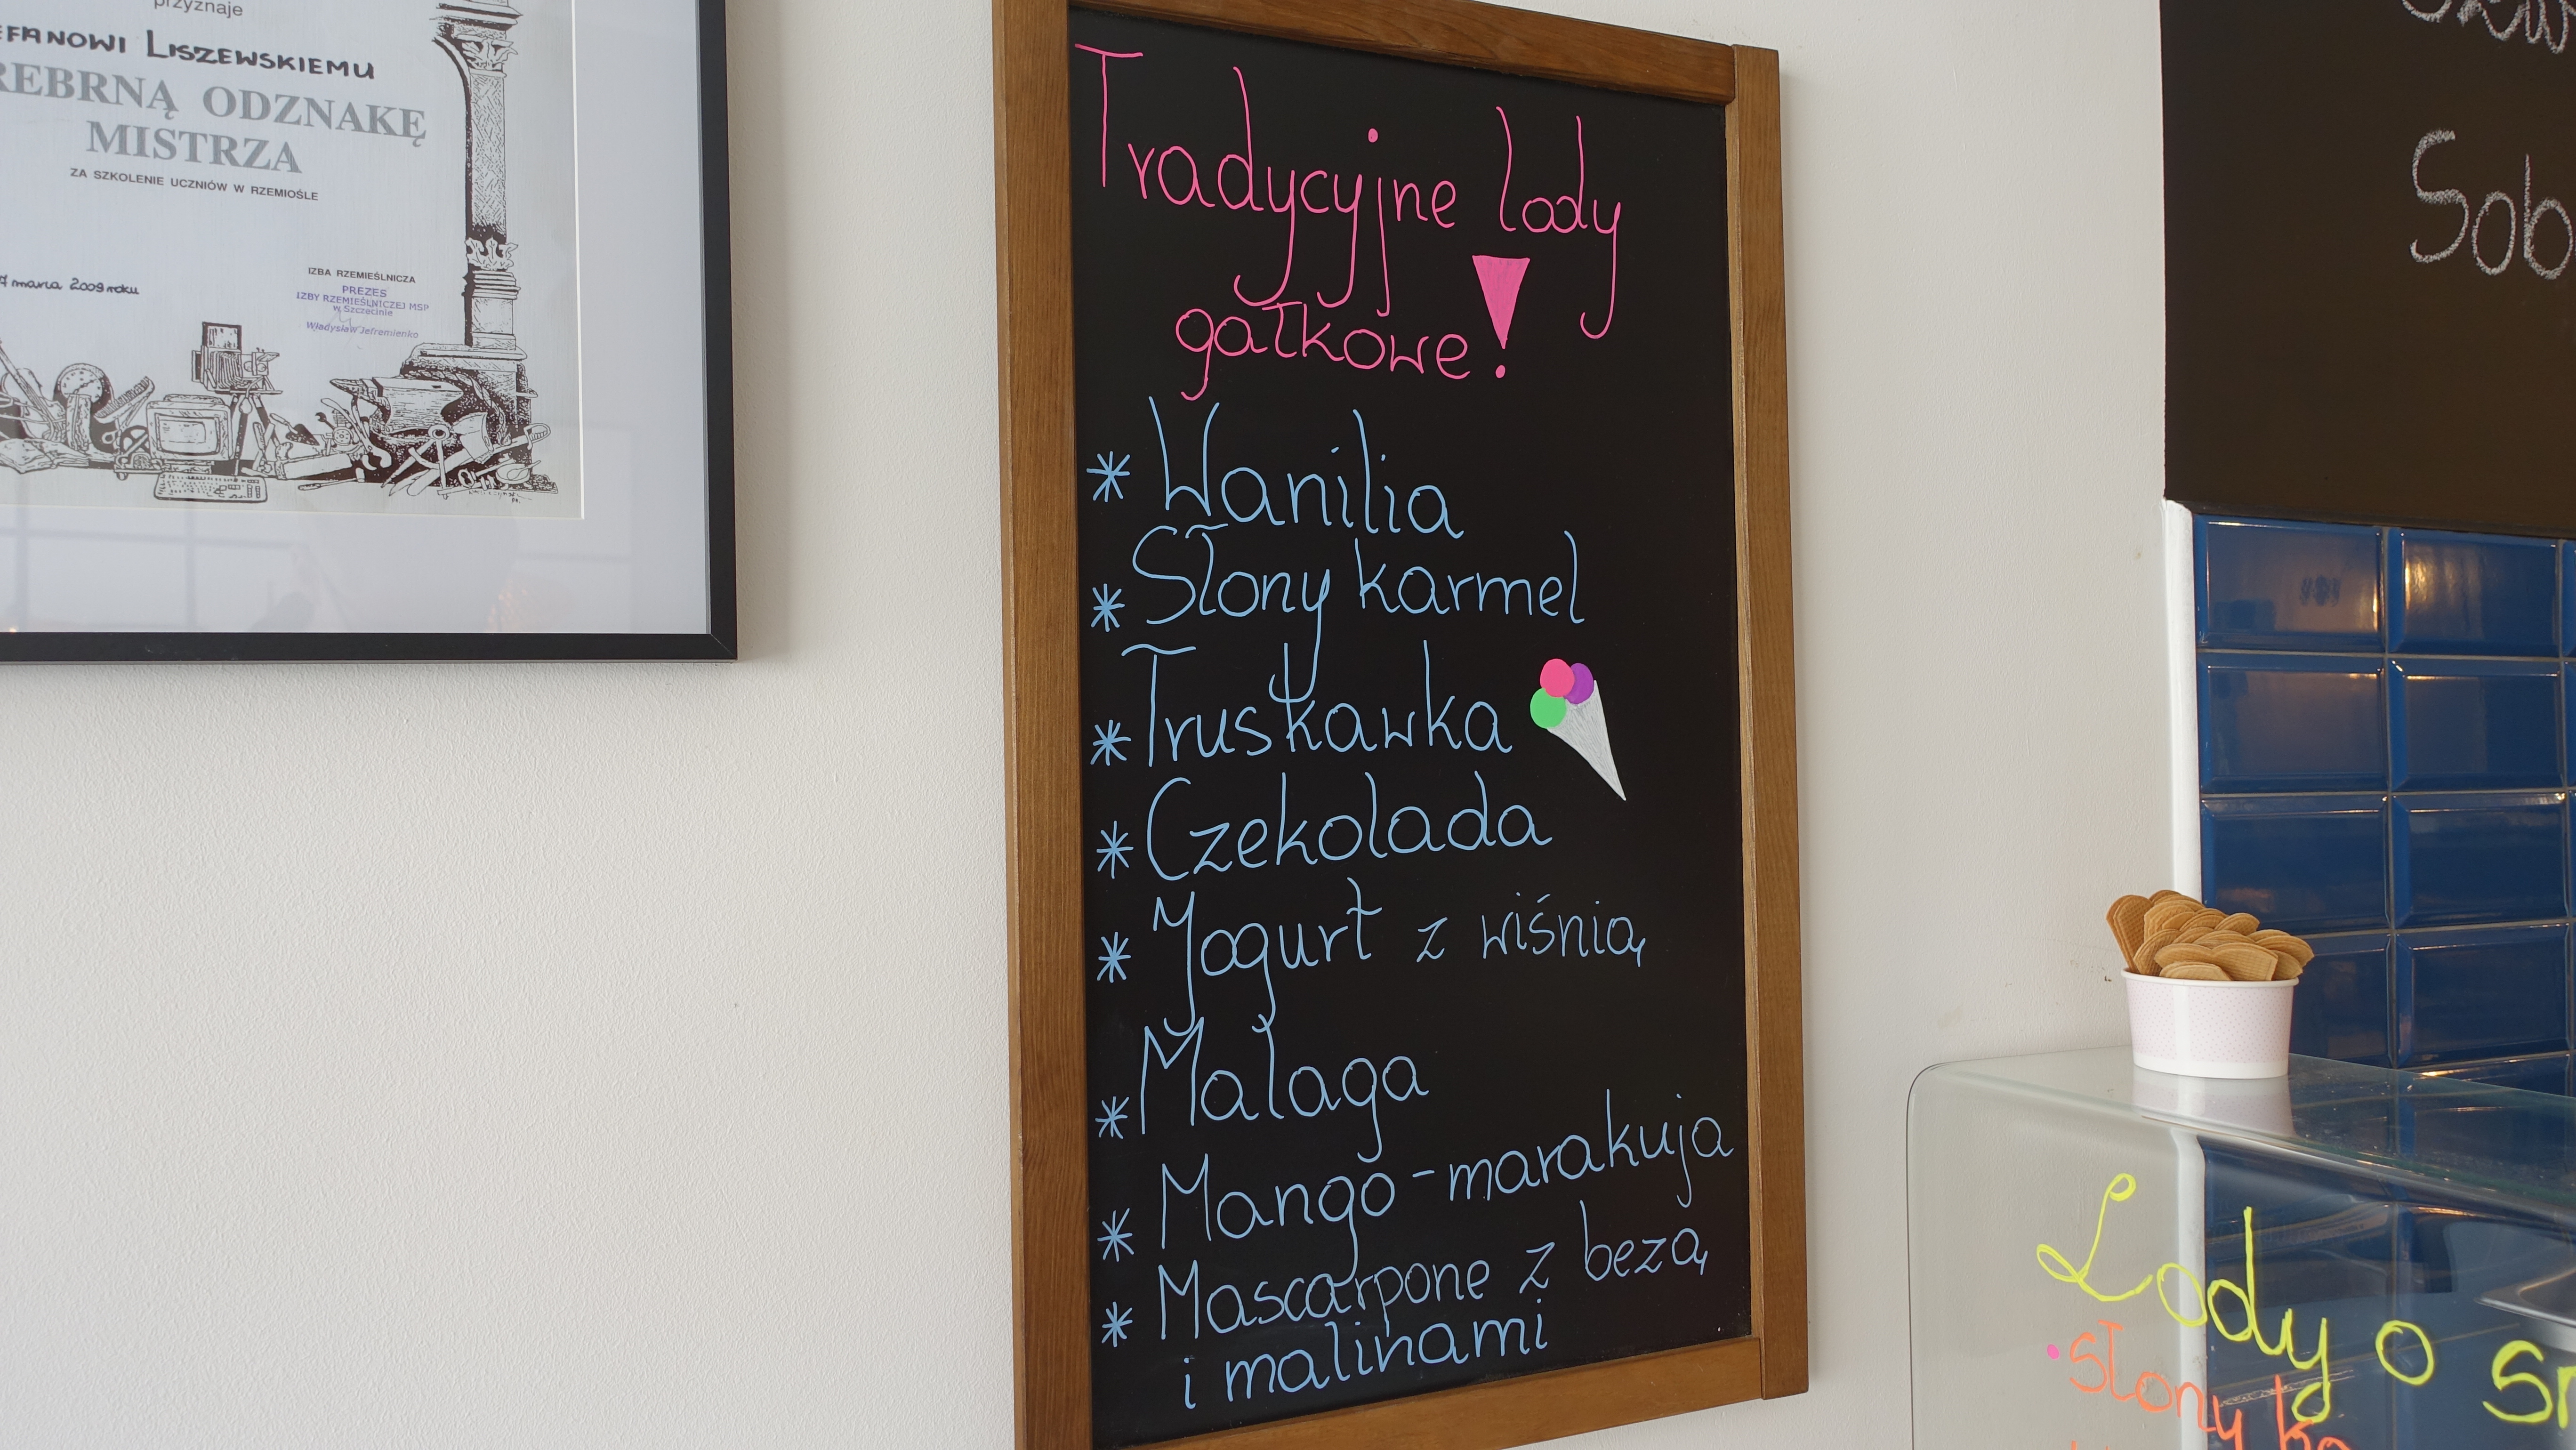 przyznaje
EFANOWI LISZEWSKIEMU
REBRNĄ ODZNAKĘ
MISTRZA
ZA SZKOLENIE UCZNIÓW W RZEMIOŚLE
marca 2009 roku
IZBA RZEMIEŚLNICZA
PREZES
IZBY RZEMIEŚLNICZEJ MSP
w Szczecinie
Władysław Jefremienko
Tradycyjne lody
gałkowe!
* Wanilia
* Słony karmel
* Truskawka
* Czekolada
* Yogurt z wiśnią
* Malaga
* Mango-marakuja
* Mascarpone z bezą
i malinami
Sob
Lody o sm
• słony ka